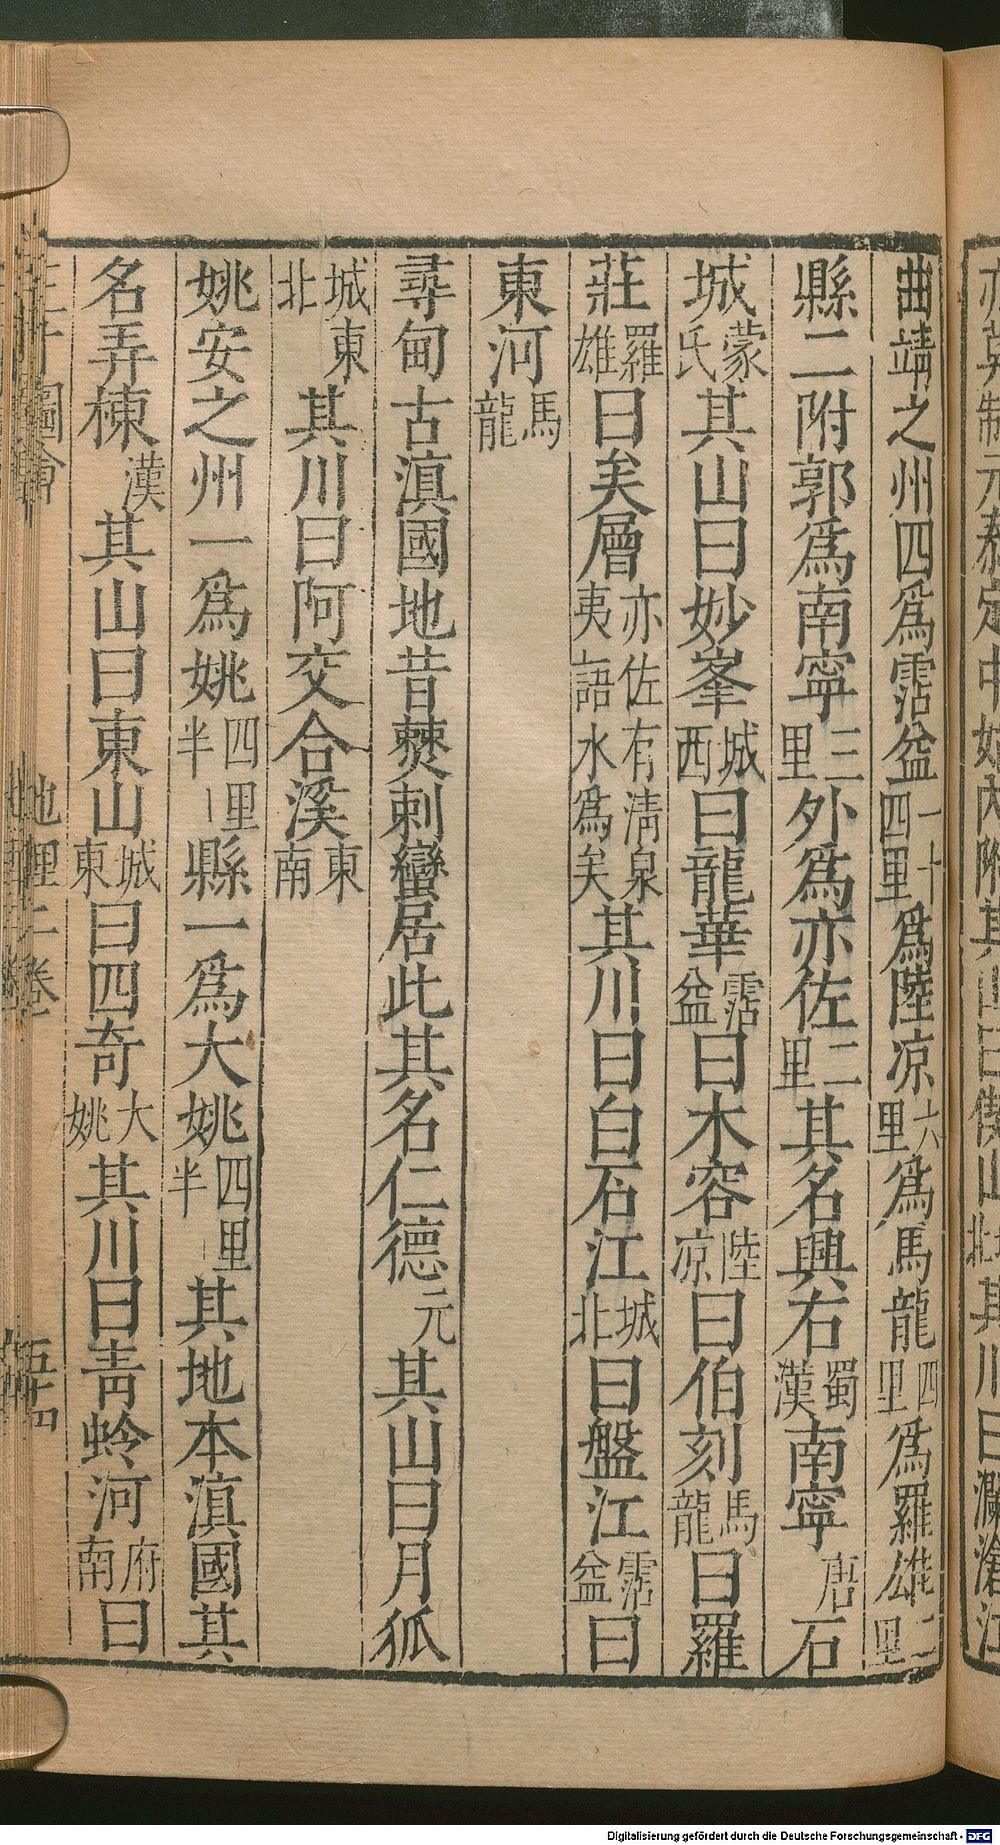 曲靖之州四爲霑益一十四里爲陸凉六里爲馬龍四里爲羅雄二里
縣二附郭爲南寧三里外爲亦佐二里其名興右蜀漢南寧唐石
城蒙氏其山曰妙峯城西曰龍華霑益曰木容陸凉曰伯刻馬龍曰羅
莊羅雄曰矣層亦佐有清泉夷語水爲矣其川曰白石江城北曰盤江霑益曰
東河馬龍
尋甸古滇國地昔僰剌蠻居此其名仁德元其山曰月狐
城東北其川曰阿交合溪東南
姚安之州一爲姚四里半縣一爲大姚四里半其地本滇國其
名弄棟漢其山曰東山城東曰四奇大姚其川曰靑蛉河府南曰
圖會
地理二卷
五十四
Digitalisierung gefördert durch die Deutsche Forschungsgemeinschaft - DFG